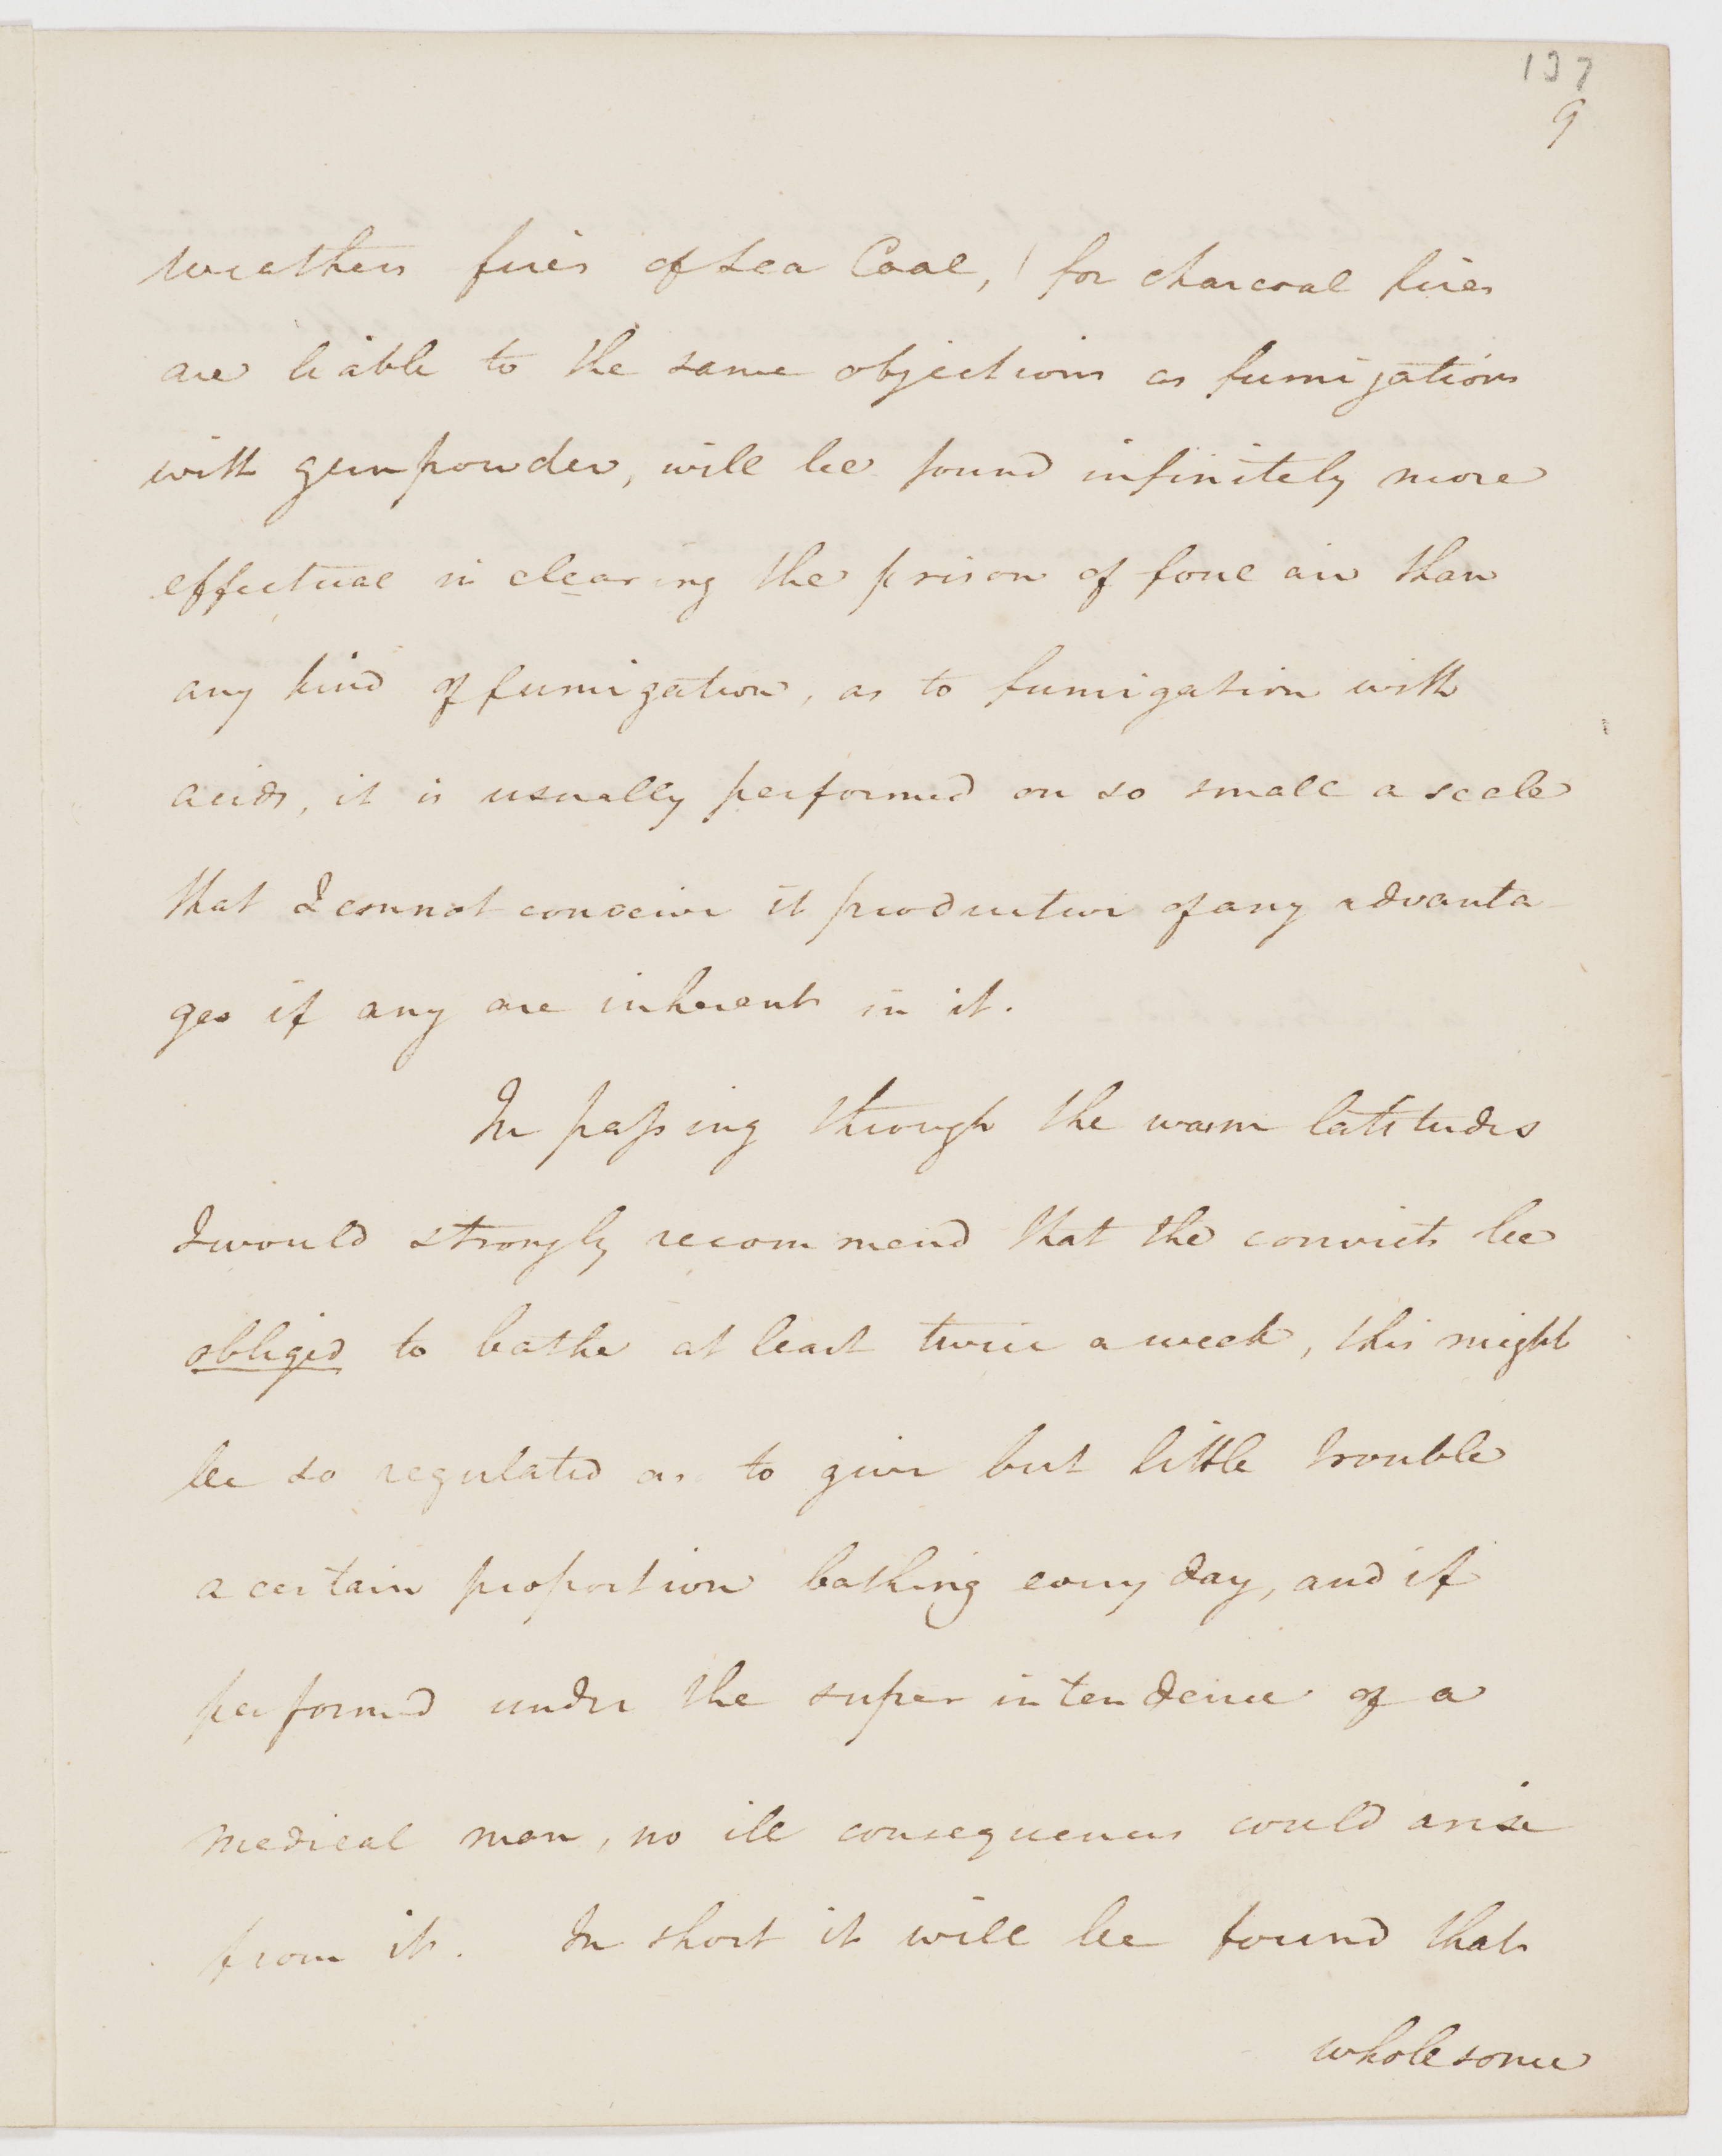 137
9
weathers fires of sea Coal, (for charcoal fires
are liable to the same objections as fumigations
with gunpowder, will be found infinitely more
effectual in clearing the prison of foul air than
any kind of fumigation, as to fumigation with
acids, it is usually performed on so small a scale
that I cannot conceive it productive of any advanta-
ges if any are inherent in it.
In passing through the warm latitudes
I would strongly recommend that the convicts be
obliged to bathe at least twice a week, this might
be so regulated as to give but little trouble
a certain proportion bathing every day, and if
performed under the superintendence of a
medical man, no ill consequences could arise
from it. In short it will be found that
wholesome